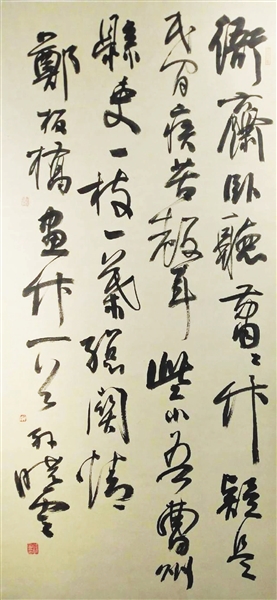 衙齋臥聽蕭〻竹疑是
民間疾苦聲些小吾曹州
縣吏一枝一葉總關情
鄭板橋畫竹一首孫曉雲